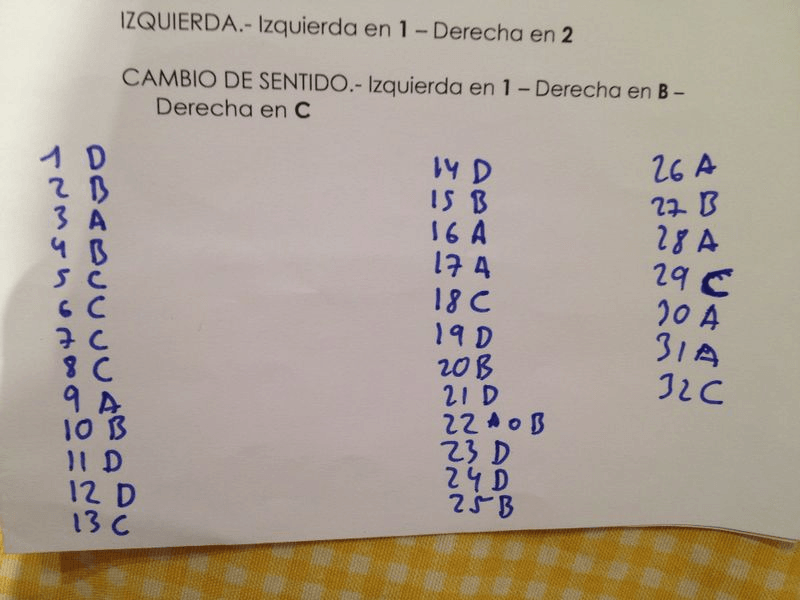 IZQUIERDA.- Izquierda en 1 – Derecha en 2
CAMBIO DE SENTIDO.- Izquierda en 1 – Derecha en B –
Derecha en C
1 D
2 B
3 A
4 B
5 C
6 C
7 C
8 C
9 A
10 B
11 D
12 D
13 C
14 D
15 B
16 A
17 A
18 C
19 D
20 B
21 D
22 A o B
23 D
24 D
25 B
26 A
27 B
28 A
29 C
30 A
31 A
32 C